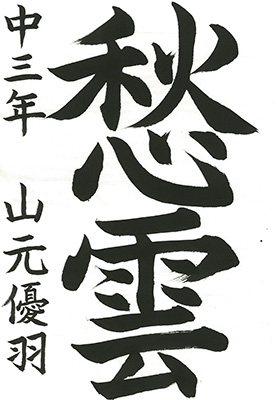 愁雲
中三年 山元優羽